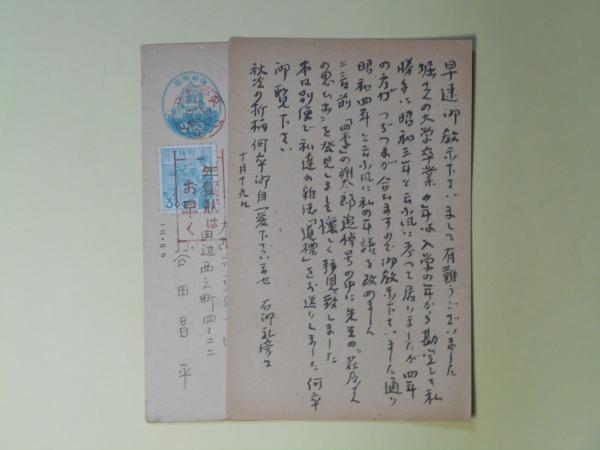 早速御教示下さいまして有難うございました
堀さんの大学卒業の年は入学の年から勘定して私
勝手に昭和三年と云ふ風に考へて居りましたが四年
の方がつぢつまが合ひますので御教示下さいました通り
昭和四年と云ふ風に私の年譜を改めました
二三日前「四季」の朔太郎追悼号の中に先生の"萩原さん
の思ひ出"を発見しまして懐しく拝見致しました
本日別便で私達の雑誌「道標」をお送りしました 何卒
御覧下さい
秋冷の折柄何卒御自愛下さいませ 右御礼旁々
十月十九日
年賀状は
お早く
田辺西之町四ノ二二
合田昌平
一二、二〇